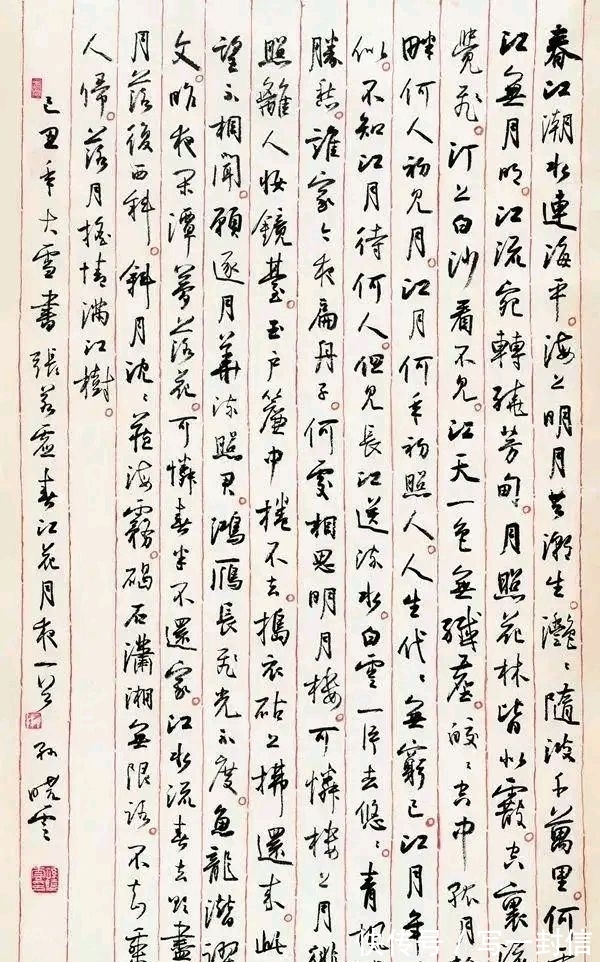 春江潮水連海平。海上明月共潮生。灧〻隨波千萬里。何
江無月明。江流宛轉繞芳甸。月照花林皆似霰。空裏流
覺飛。汀上白沙看不見。江天一色無纖塵。皎〻空中孤月
畔何人初見月。江月何年初照人。人生代〻無窮已。江月年
似。不知江月待何人。但見長江送流水。白雲一片去悠〻。青楓
勝愁。誰家今夜扁舟子。何處相思明月樓。可憐樓上月徘
照離人妝鏡臺。玉戶簾中捲不去。搗衣砧上拂還來。此
望不相聞。願逐月華流照君。鴻雁長飛光不度。魚龍潛躍
文。昨夜閑潭夢落花。可憐春半不還家。江水流春去欲盡
月落復西斜。斜月沈〻藏海霧。碣石瀟湘無限路。不知乘
人歸。落月搖情滿江樹。
己丑年大雪書張若虛春江花月夜一首 孫曉雲
快传号／写一封信